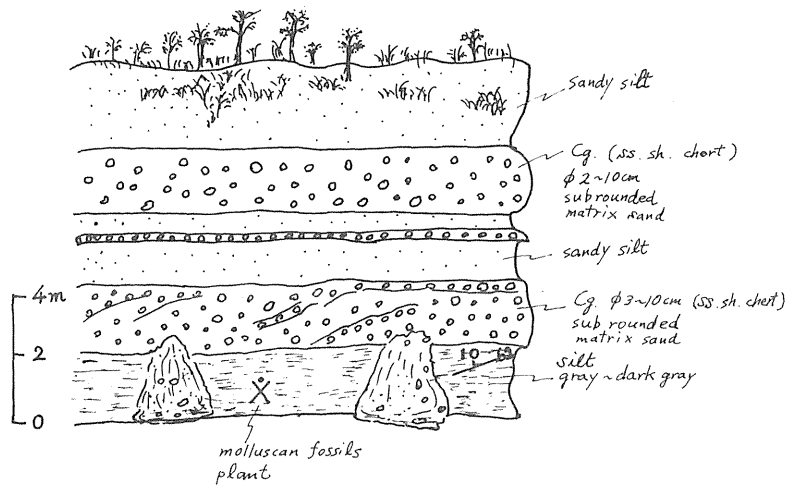 sandy silt
Cg. (ss. sh. chert)
φ2~10cm
subrounded
matrix sand
sandy silt
4m
Cg. φ3~10cm (ss. sh. chert)
sub rounded
matrix sand
2
silt
gray~dark gray
0
molluscan fossils
plant